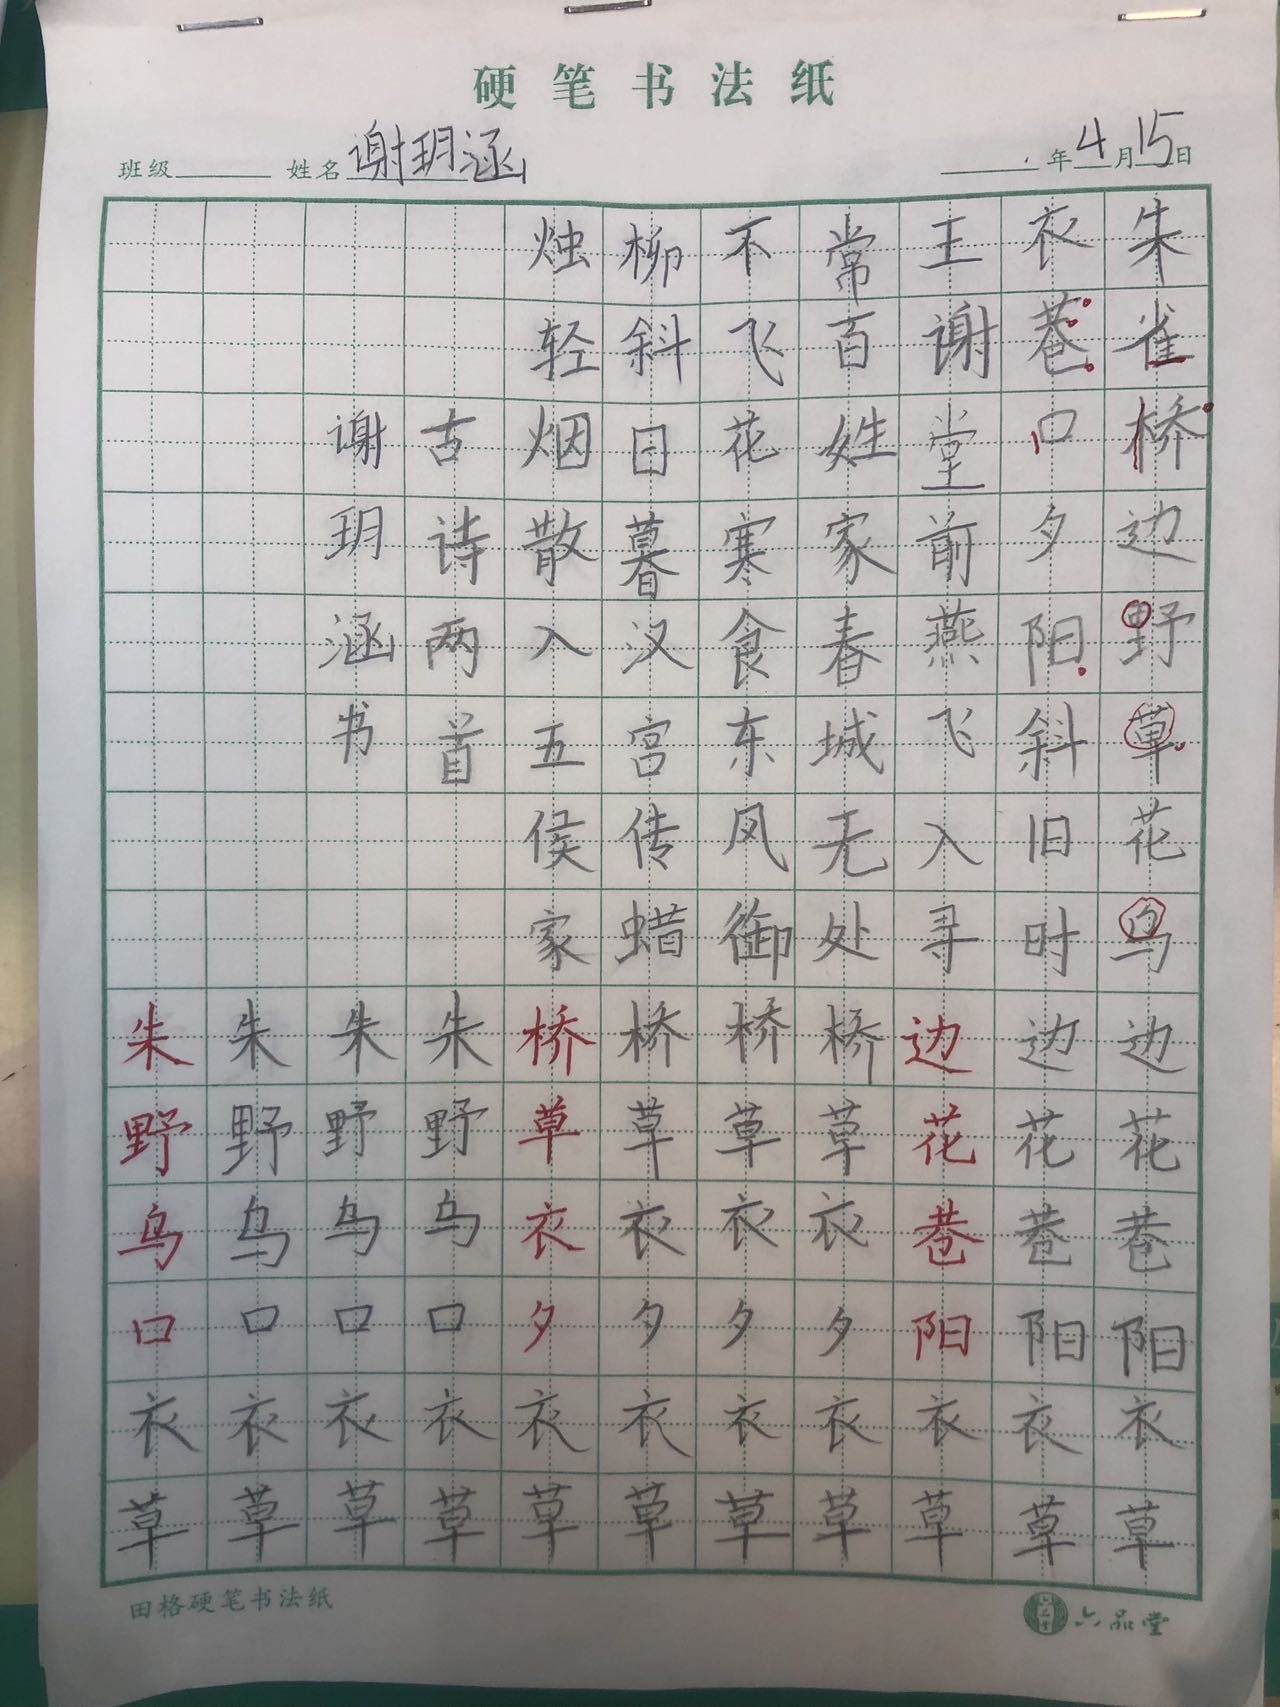 硬笔书法纸
班级 姓名 谢玥涵 年 4 月 15 日
朱雀桥边野草花乌
衣巷口夕阳斜旧时
王谢堂前燕飞入寻
常百姓家春城无处
不飞花寒食东风御
柳斜日暮汉宫传蜡
烛轻烟散入五侯家
古诗两首
谢玥涵书
朱朱朱朱桥桥桥桥边边边
野野野野草草草草花花花
乌乌乌乌衣衣衣衣巷巷巷
口口口口夕夕夕夕阳阳阳
衣衣衣衣衣衣衣衣衣衣衣
草草草草草草草草草草草
田格硬笔书法纸
六品堂